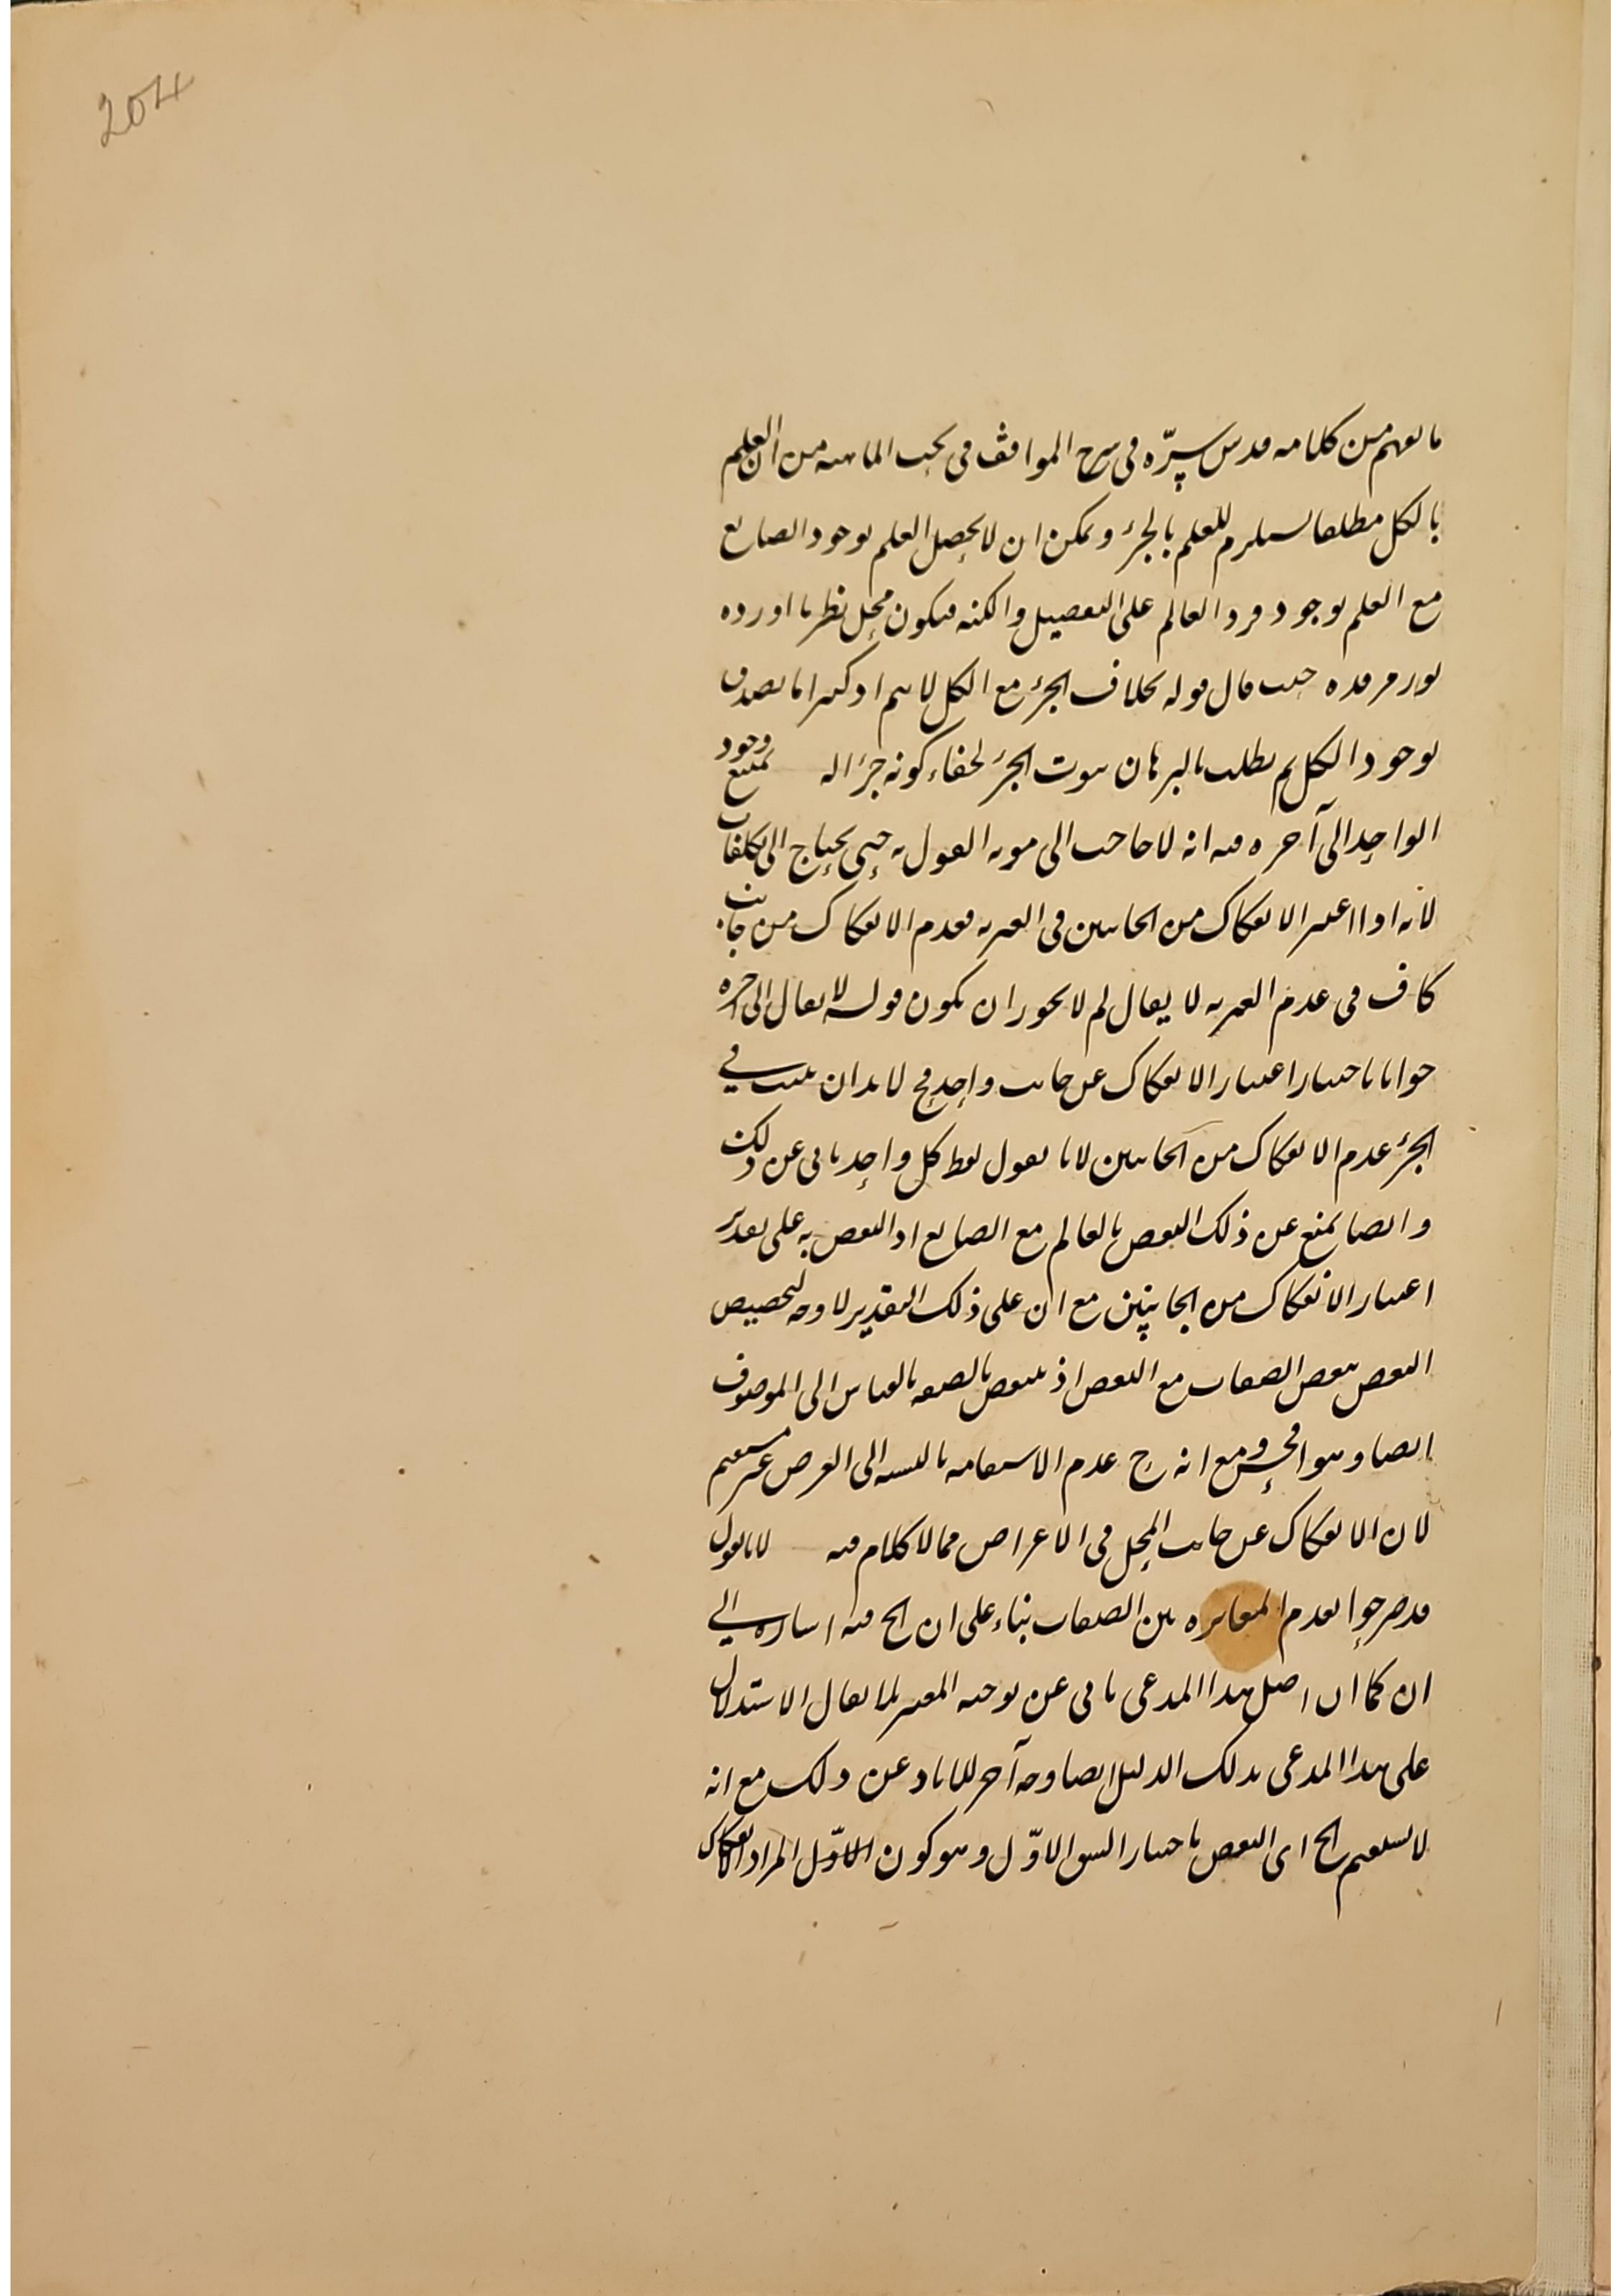 204
ما يفهم من كلامه قدس سره فى شرح المواقف فى بحث الماهية من ان العلم
بالكل مطلقا يستلزم للعلم بالجزء ويمكن ان لا يحصل العلم بوجود الصانع
مع العلم بوجود فرد العالم على التفصيل والكنه فيكون محل نظر ما اورده
نور مرقده حيث قال قوله بخلاف الجزء مع الكل لا يتم اذ كثيرا ما يصدق
بوجود الكل ثم يطلب بالبرهان ثبوت الجزء لخفاء كونه جزء اله يمتنع وجود
الواحد الى آخره فيه انه لا حاجت الى مونه القول به حتى يحتاج الى تكلفات
لأنه اذا اعتبر الانفكاك من الجانبين فى الغيرية فعدم الانفكاك من جانب
كاف فى عدم الغيرية لا يقال لم لا يجوز ان يكون قوله لا يقال الى آخره
جوابا باختيار اعتبار الانفكاك عن جانب واحد فح لا بد ان يثبت في
الجزء عدم الانفكاك من الجانبين لانا نقول لفظ كل واحد يابى عن ذلك
وايضا يمنع عن ذلك النقض بالعالم مع الصانع اذ النقض به على تقدير
اعتبار الانفكاك من الجانبين مع ان على ذلك التقدير لا وجه لتخصيص
النقض ببعض الصفات مع البعض اذ ينتقض بالصفه بالقياس الى الموصوف
ايضا وهو افحش ومع انه ح عدم الاستقامه بالنسبه الى العرض غير مستقيم
لان الانفكاك عن جانب المحل فى الاعراض مما لا كلام فيه لانا نقول
قد صرحوا بعدم المغايره بين الصفات بناء على ان الخ فيه اشاره الي
ان كما ان اصل هذا المدعى يابى عن توجيه المعتبر بما يقال الاستدلال
على هذا المدعى بذلك الدليل ايضا وجه آخر للاباء عن ذلك مع انه
لا يستقيم الخ اى النقض باختيار الشق الاوّل وهو كون الاوّل المراد الانفكاك